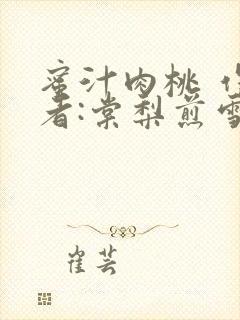 蜜汁肉桃 作
者:棠梨煎雪
崔芸